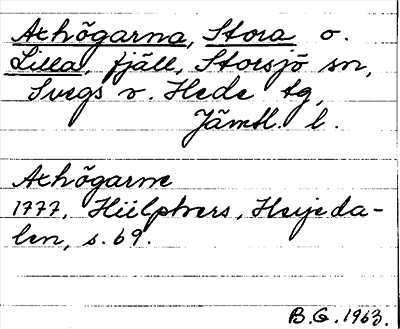 Axhögarna, Stora o.
Lilla, fjäll, Storsjö sn,
Svegs o. Hede tg,
Jämtl. l.
Axhögarne
1777, Hülphers, Herjeda-
len, s. 69.
B.G. 1963.